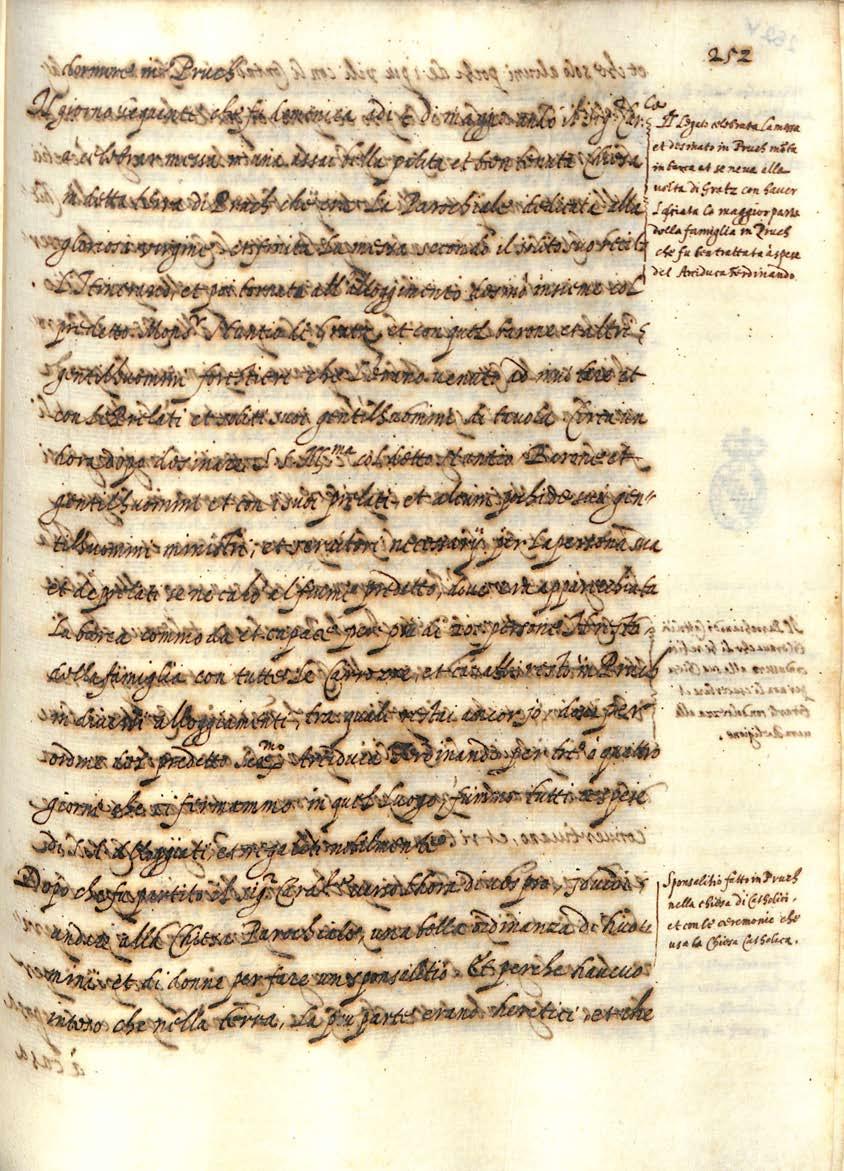 252
dormire in Pruch
Il giorno seguente che fu domenica adi di maggio andò il sig.r Car.le
a celebrar messa in una assai bella polita et ben tenuta Chiesa
in detta terra di Pruch che era la Parochiale dedicata alla
gloriosa vergine, et finita la messa secondo il solito suo
l'Itinerario, et poi tornata all'alloggiamento desinò insieme col
predetto Mons.r Nuntio di Gratz, et con quel barone et altri
gentilhuomini forestieri che erano venuti ad et
con li Prelati et soliti suoi gentilhuomini di tavola. Circa un
hora dopo desinare S. S. Ill.ma col detto Nuntio Barone et
gentilhuomini et con i suoi prelati, et alcuni pochi de suoi gen-
tilhuomini ministri, et servitori necessarij per la persona sua
et de prelati se ne calò al fiume predetto, dove era apparecchiata
la barca commoda et capace per più di persone. Il resto
della famiglia con tutte le Carrozze, et cavalli restò in Pruch
in diversi alloggiamenti, tra quali restai ancor io, dove per
ordine del predetto Ser.mo Arciduca Ferdinando per tre o quattro
giorni che ci fermammo in quel luogo, fummo tutti a spese
di S. A. alloggiati, et regalati nobilmente
Dopo che fu partito il sig.r Car.le verso l'hora di vespro, io vidi
andar alla Chiesa Parochiale, una bella ordinanza di huo
mini et di donne per fare un sponsalitio. Et perche havevo
inteso che nella terra, la più parte erano heretici, et che
à casa
Il Legato celebrata la messa
et desinato in Pruch monta
in barca et se ne va alla
volta di Gratz con haver
lasciata la maggior parte
della famiglia in Pruch
che fu ben trattata à spese
del Arciduca Ferdinando.
Sponsalitio fatto in Pruch
nella chiesa di Catholici,
et con le ceremonie che
usa la Chiesa Catholica.